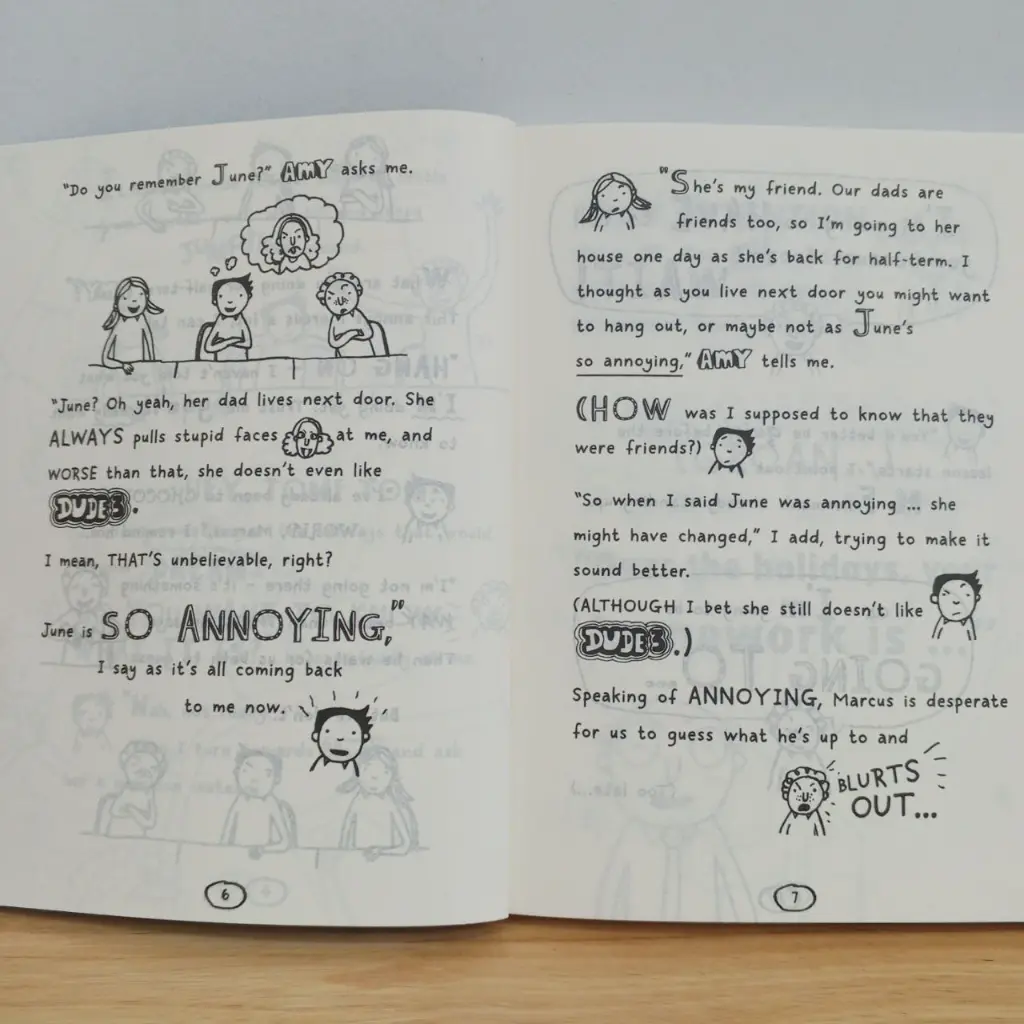 "Do you remember June?" AMY asks me.
"June? Oh yeah, her dad lives next door. She
ALWAYS pulls stupid faces at me, and
WORSE than that, she doesn't even like
DUDE3.
I mean, THAT'S unbelievable, right?
June is SO ANNOYING,"
I say as it's all coming back
to me now.
6
"She's my friend. Our dads are
friends too, so I'm going to her
house one day as she's back for half-term. I
thought as you live next door you might want
to hang out, or maybe not as June's
so annoying," AMY tells me.
(HOW was I supposed to know that they
were friends?)
"So when I said June was annoying ... she
might have changed," I add, trying to make it
sound better.
(ALTHOUGH I bet she still doesn't like
DUDE3.)
Speaking of ANNOYING, Marcus is desperate
for us to guess what he's up to and
BLURTS
OUT...
7